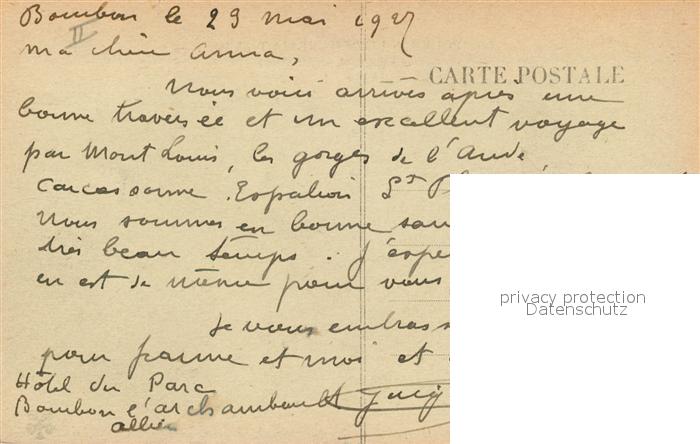 Bourbon le 29 mai 1927
II
ma chère Anna,
CARTE POSTALE
Nous voici arrivés après une
bonne traversée et un excellent voyage
par Mont Louis, les gorges de l'Aude
Carcassonne, Espalion St
Nous sommes en bonne
très beau temps.
en est de même pour vous
privacy protection
Datenschutz
Je vous
pour Jeanne et moi et
Hôtel du Parc
Bourbon l'archambault
Allier